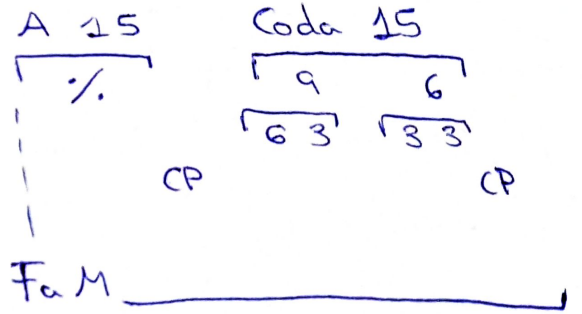 A 15 Coda 15
٪ 9 6
6 3 3 3
CP CP
Fa M